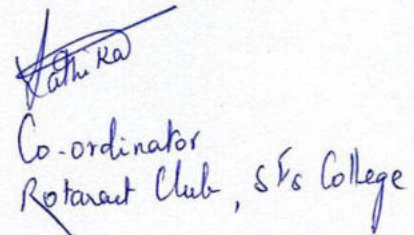 Lathika
Co-ordinator
Rotaract Club, SFS College